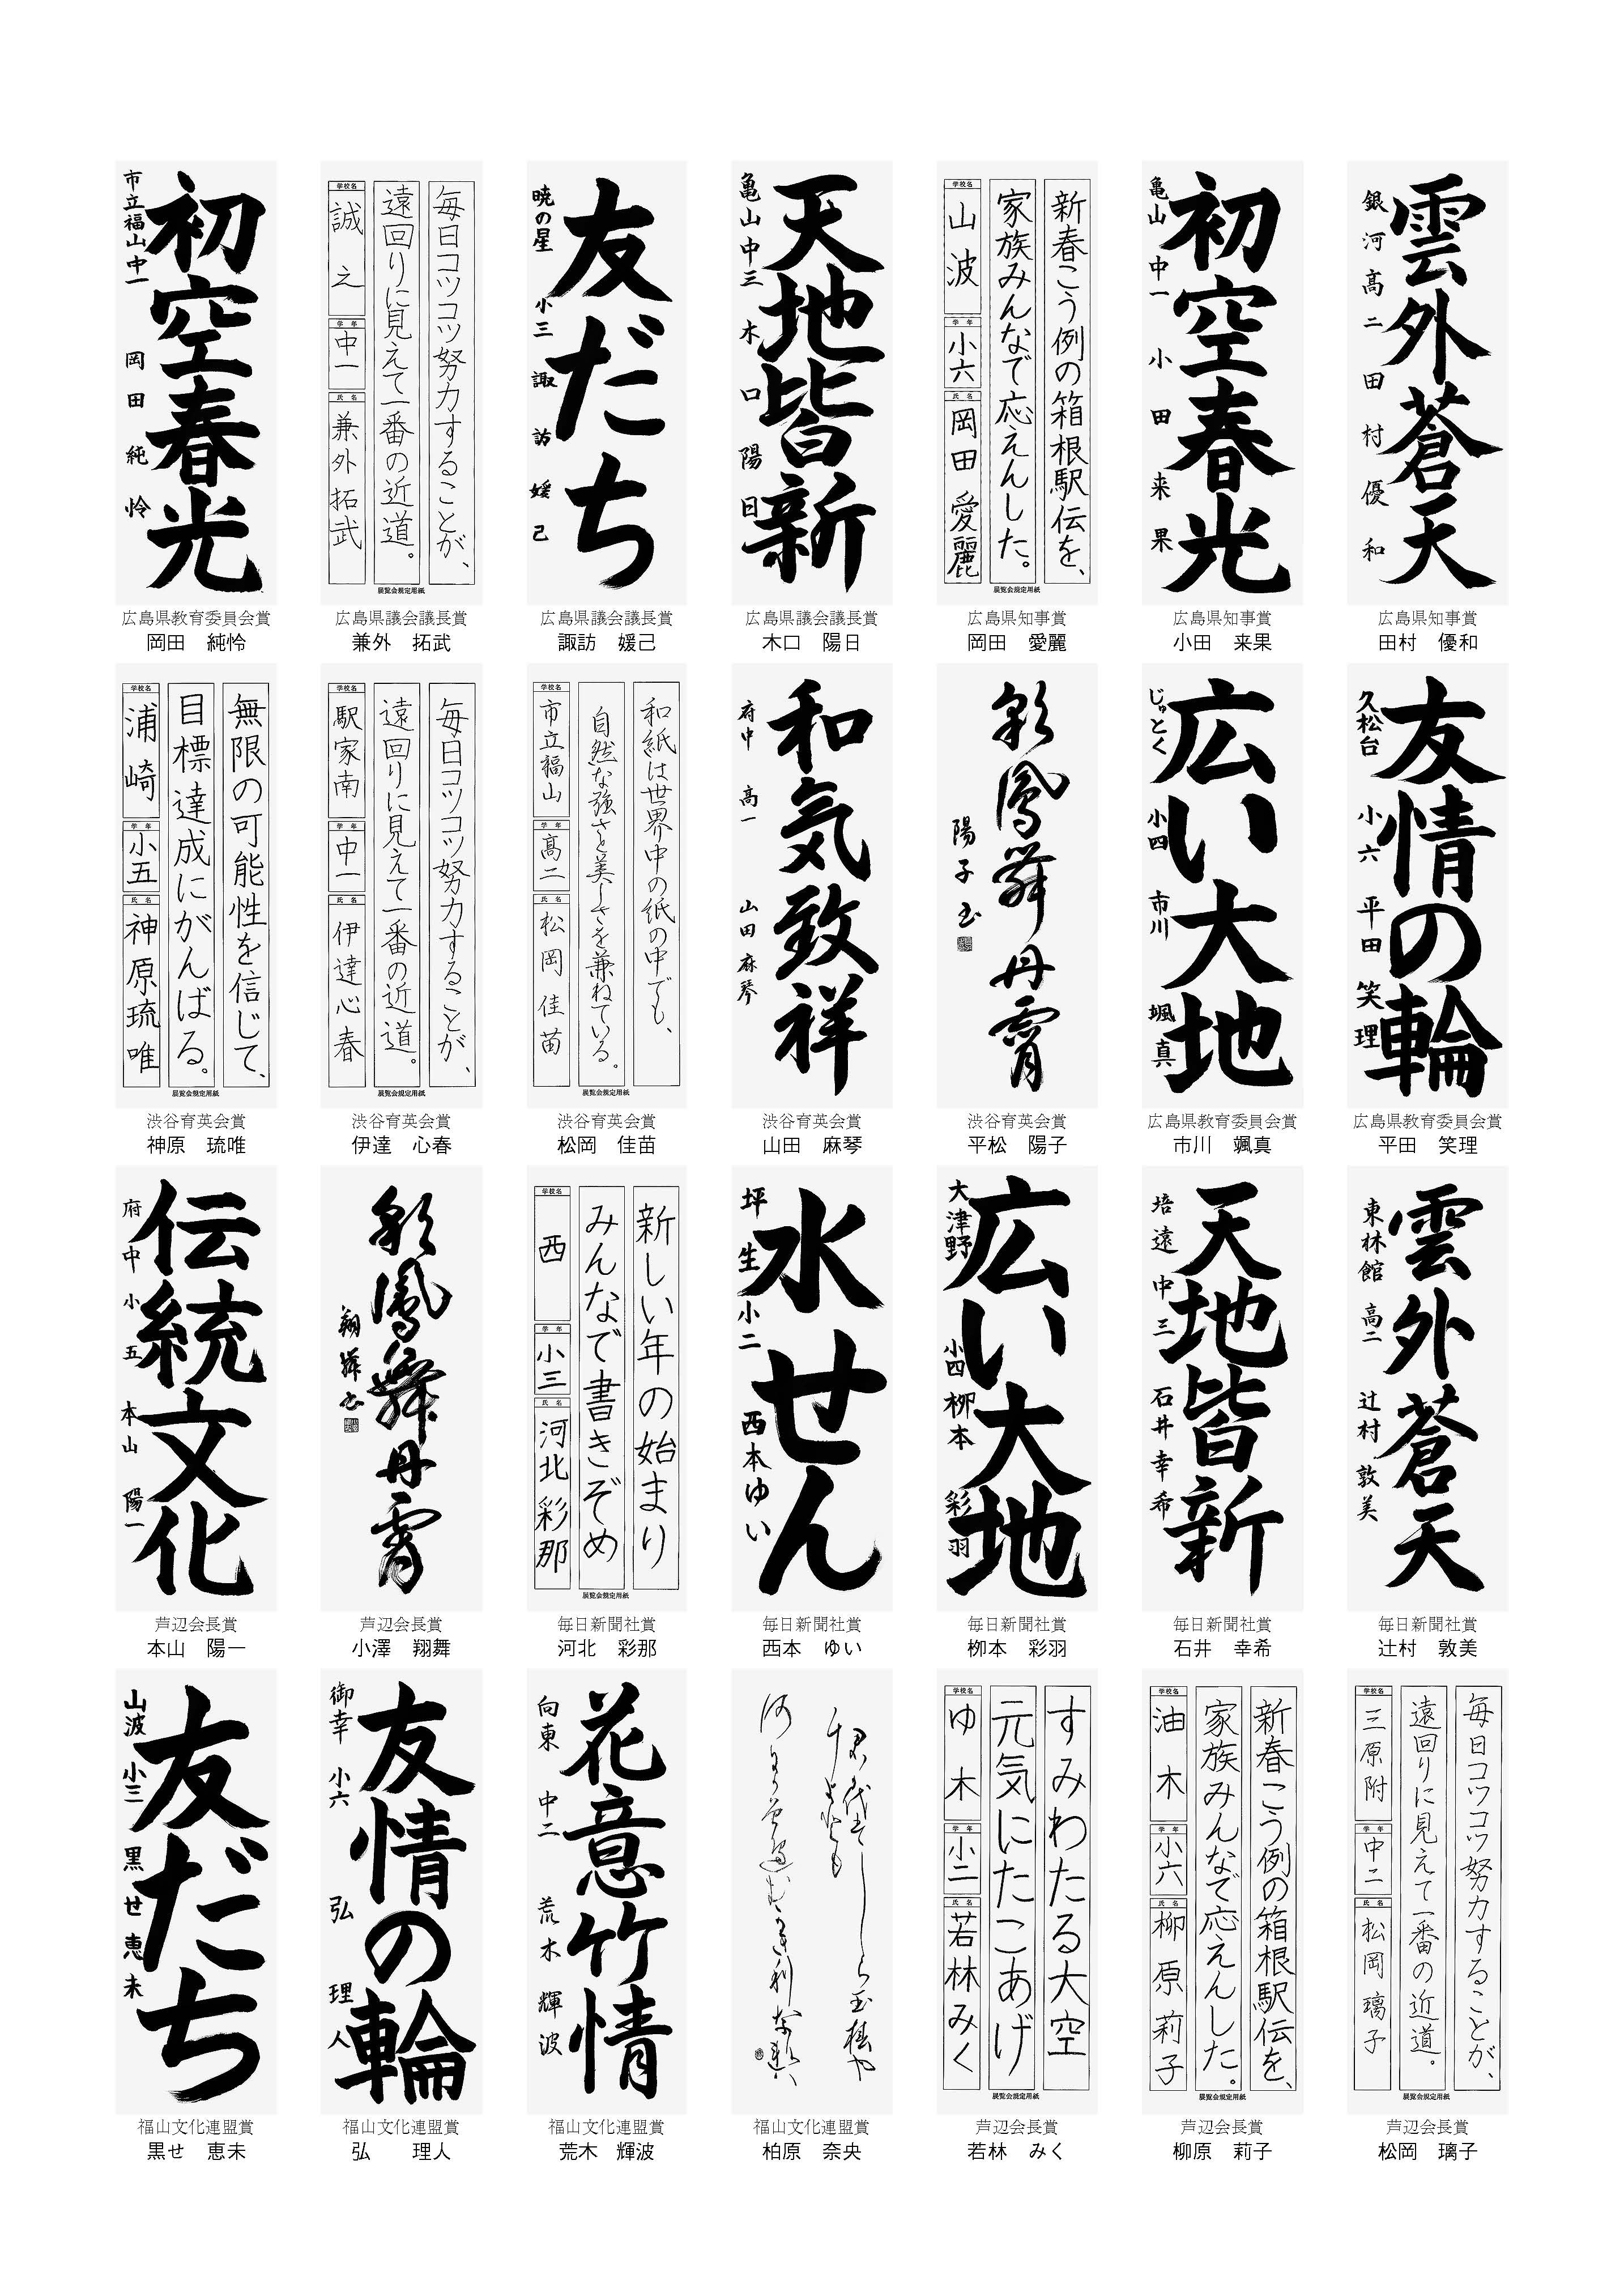 雲外蒼天
銀河高二 田村優和
広島県知事賞
田村 優和
初空春光
亀山中一 小田来果
広島県知事賞
小田 来果
新春こう例の箱根駅伝を、
家族みんなで応えんした。
学校名 山波 学年 小六 氏名 岡田愛麗
展覧会規定用紙
広島県知事賞
岡田 愛麗
天地皆新
亀山中三 木口陽日
広島県議会議長賞
木口 陽日
友だち
暁の星小三 諏訪媛己
広島県議会議長賞
諏訪 媛己
毎日コツコツ努力することが、
遠回りに見えて一番の近道。
学校名 誠之 学年 中一 氏名 兼外拓武
展覧会規定用紙
広島県議会議長賞
兼外 拓武
初空春光
市立福山中一 岡田純怜
広島県教育委員会賞
岡田 純怜
友情の輪
久松台小六 平田笑理
広島県教育委員会賞
平田 笑理
広い大地
じゅとく小四 市川颯真
広島県教育委員会賞
市川 颯真
彩鳳舞丹霄
陽子書
渋谷育英会賞
平松 陽子
和気致祥
府中高一 山田麻琴
渋谷育英会賞
山田 麻琴
和紙は世界中の紙の中でも、
自然な強さと美しさを兼ねている。
学校名 市立福山 学年 高二 氏名 松岡佳苗
展覧会規定用紙
渋谷育英会賞
松岡 佳苗
毎日コツコツ努力することが、
遠回りに見えて一番の近道。
学校名 駅家南 学年 中一 氏名 伊達心春
展覧会規定用紙
渋谷育英会賞
伊達 心春
無限の可能性を信じて、
目標達成にがんばる。
学校名 浦崎 学年 小五 氏名 神原琉唯
展覧会規定用紙
渋谷育英会賞
神原 琉唯
雲外蒼天
東林館高二 辻村敦美
毎日新聞社賞
辻村 敦美
天地皆新
培遠中三 石井幸希
毎日新聞社賞
石井 幸希
広い大地
大津野小四 栁本彩羽
毎日新聞社賞
栁本 彩羽
水せん
坪生小二 西本ゆい
毎日新聞社賞
西本 ゆい
新しい年の始まり
みんなで書きぞめ
学校名 西 学年 小三 氏名 河北彩那
展覧会規定用紙
毎日新聞社賞
河北 彩那
彩鳳舞丹霄
翔舞書
芦辺会長賞
小澤 翔舞
伝統文化
府中小五 本山陽一
芦辺会長賞
本山 陽一
毎日コツコツ努力することが、
遠回りに見えて一番の近道。
学校名 三原附 学年 中二 氏名 松岡璃子
展覧会規定用紙
芦辺会長賞
松岡 璃子
新春こう例の箱根駅伝を、
家族みんなで応えんした。
学校名 油木 学年 小六 氏名 柳原莉子
展覧会規定用紙
芦辺会長賞
柳原 莉子
すみわたる大空
元気にたこあげ
学校名 ゆ木 学年 小二 氏名 若林みく
展覧会規定用紙
芦辺会長賞
若林 みく
福山文化連盟賞
柏原 奈央
花意竹情
向東中二 荒木輝波
福山文化連盟賞
荒木 輝波
友情の輪
御幸小六 弘理人
福山文化連盟賞
弘 理人
友だち
山波小三 黒せ恵未
福山文化連盟賞
黒せ 恵未